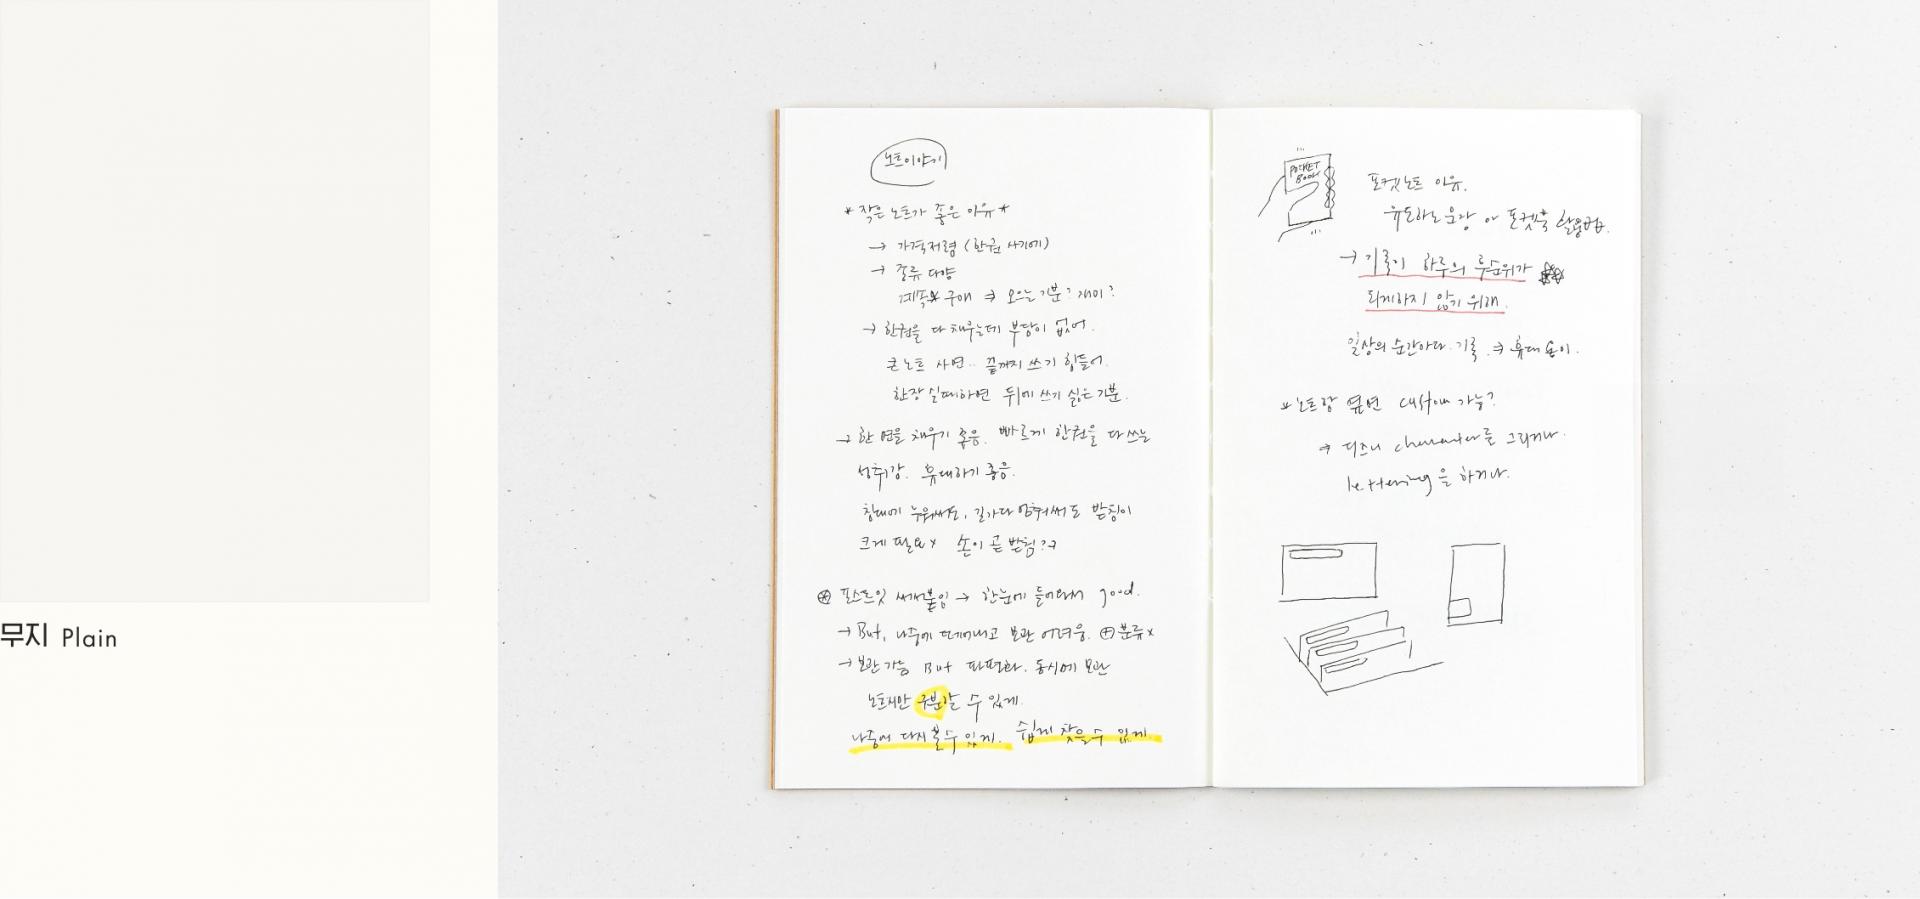 무지 Plain
노트이야기
* 작은 노트가 좋은 이유 *
→ 가격저렴 (한권 사기에)
→ 종류 다양
계속 구매 → 오늘 기분? 재미?
→ 한권을 다 채우는데 부담이 없어.
큰 노트 사면.. 끝까지 쓰기 힘들어.
한장 실패하면 뒤에 쓰기 싫은 기분.
→ 한 면을 채우기 좋음. 빠르게 한권을 다 쓰는
성취감. 휴대하기 좋음.
침대에 누워써도, 길가다 멈춰써도 받침이
크게 필요x 손이 곧 받침?
포스트잇 써서붙임 → 한눈에 들어와서 good.
→ But, 나중에 떼어내고 보관 어려움. ⊕분류x
→ 보관가능 But 파편화. 동시에 보관
노트지만 구분할 수 있게.
나중에 다시 볼 수 있게. 쉽게 찾을 수 있게.
POCKET
BOOK
포켓노트 이유.
포켓을 활용
→ 기록이 하루의 후순위가
되게하지 않기 위해.
일상의 순간마다 기록 → 휴대
custom 가능?
→ 디즈니 character를 그리거나
lettering을 하거나.